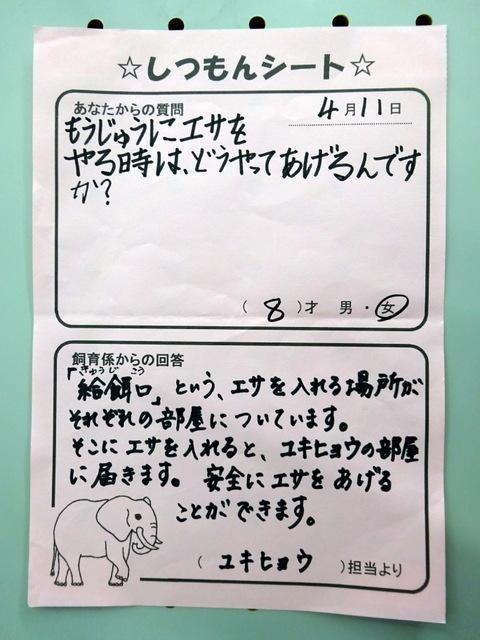 ☆しつもんシート☆
あなたからの質問
4月11日
もうじゅうにエサを
やる時は、どうやってあげるんです
か？
（ 8 ）才 男・女
飼育係からの回答
きゅうじこう
「給餌口」という、エサを入れる場所が
それぞれの部屋についています。
そこにエサを入れると、ユキヒョウの部屋
に届きます。安全にエサをあげる
ことができます。
（ ユキヒョウ ）担当より